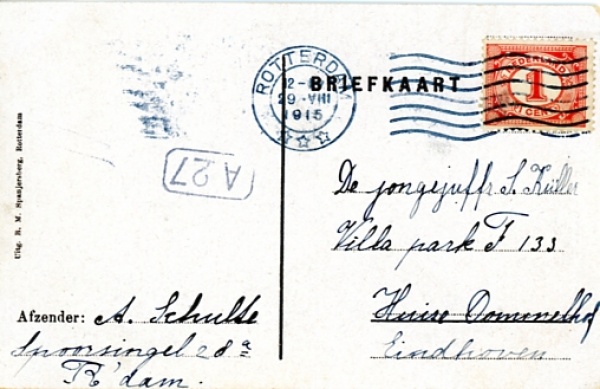 ROTTERDAM
12-
29 VIII
1915
BRIEFKAART
NEDERLAND
1
1 CENT
A 27
De jongejuffr. S. Küller
Villa park F 133
Huise Dommelhof
Eindhoven
Uitg. R. M. Spanjersberg, Rotterdam
Afzender: A. Schulte
Spoorsingel 28a
R'dam.